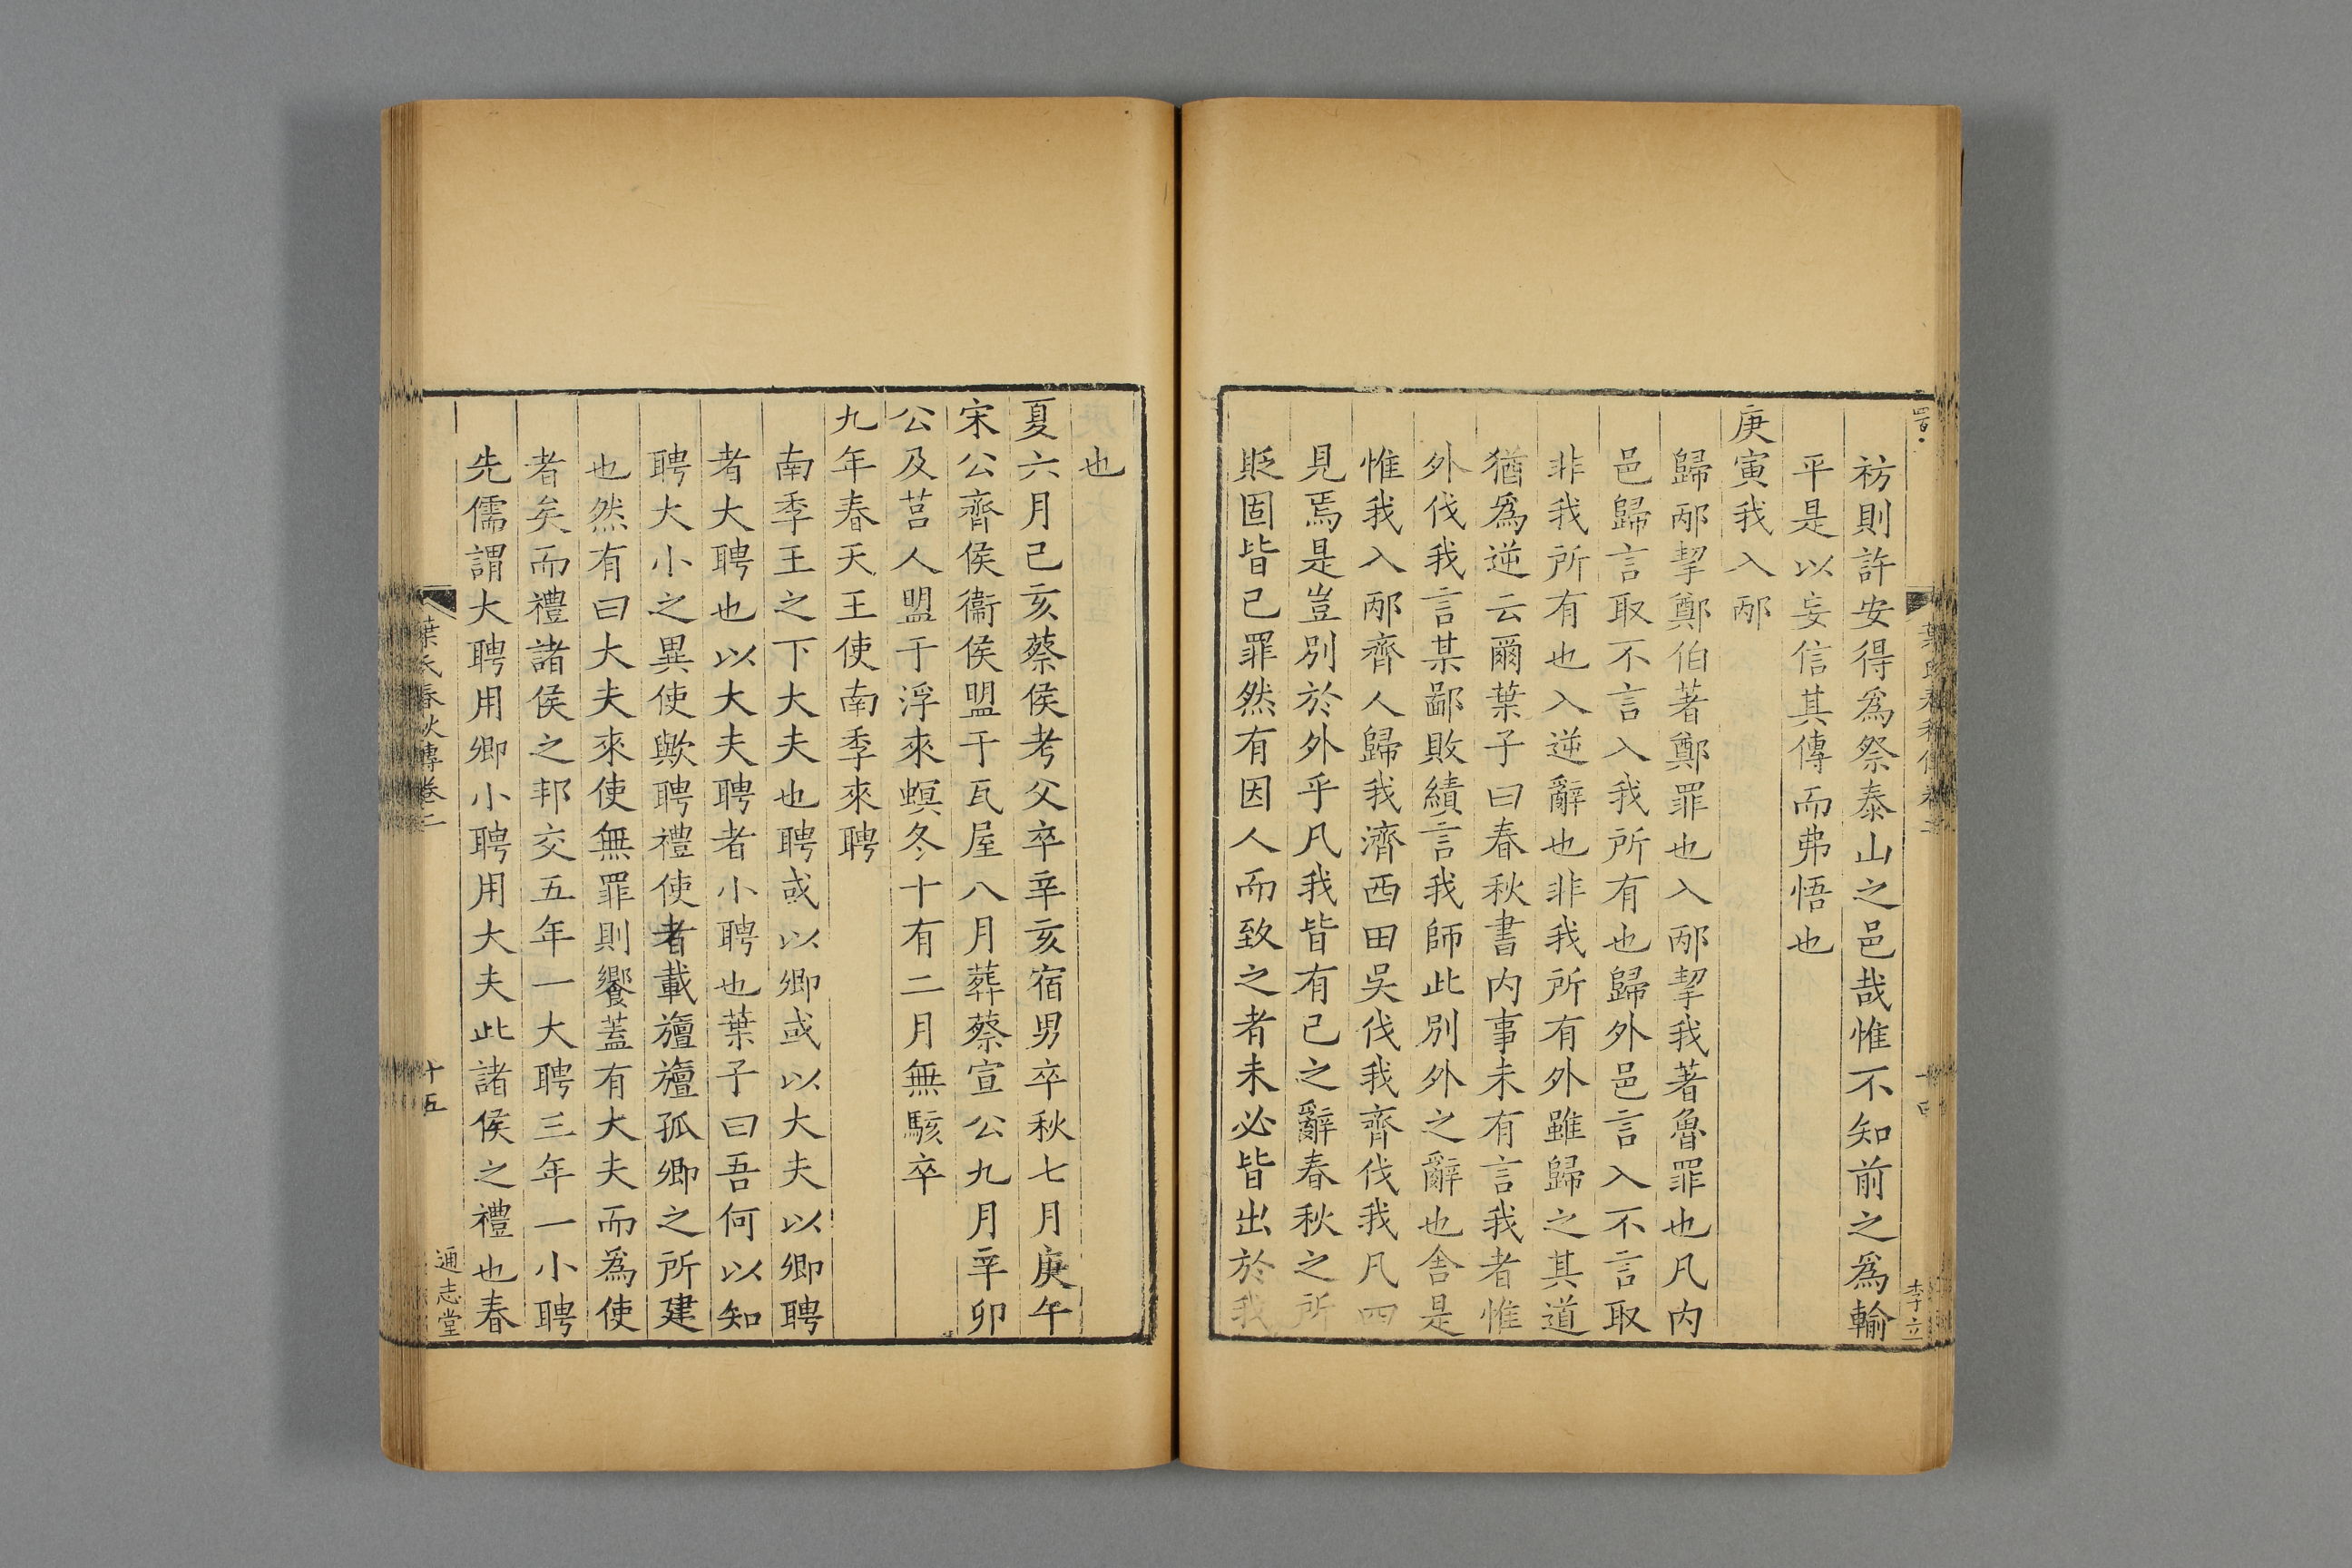 祊則許安得爲祭泰山之邑哉惟不知前之爲輸
平是以妄信其傳而弗悟也
庚寅我入邴
歸邴挈鄭伯著鄭罪也入邴挈我著魯罪也凡内
邑歸言取不言入我所有也歸外邑言入不言取
非我所有也入逆辭也非我所有外雖歸之其道
猶爲逆云爾葉子曰春秋書内事未有言我者惟
外伐我言某鄙敗績言我師此別外之辭也舍是
惟我入邴齊人歸我濟西田吳伐我齊伐我凡四
見焉是豈別於外乎凡我皆有己之辭春秋之所
貶固皆己罪然有因人而致之者未必皆出於我
李立
也
夏六月己亥蔡侯考父卒辛亥宿男卒秋七月庚午
宋公齊侯衞侯盟于瓦屋八月葬蔡宣公九月辛卯
公及莒人盟于浮來螟冬十有二月無駭卒
九年春天王使南季來聘
南季王之下大夫也聘或以卿或以大夫以卿聘
者大聘也以大夫聘者小聘也葉子曰吾何以知
聘大小之異使歟聘禮使者載旜旜孤卿之所建
也然有曰大夫來使無罪則饗蓋有大夫而爲使
者矣而禮諸侯之邦交五年一大聘三年一小聘
先儒謂大聘用卿小聘用大夫此諸侯之禮也春
葉氏春秋傳卷二
十五
通志堂